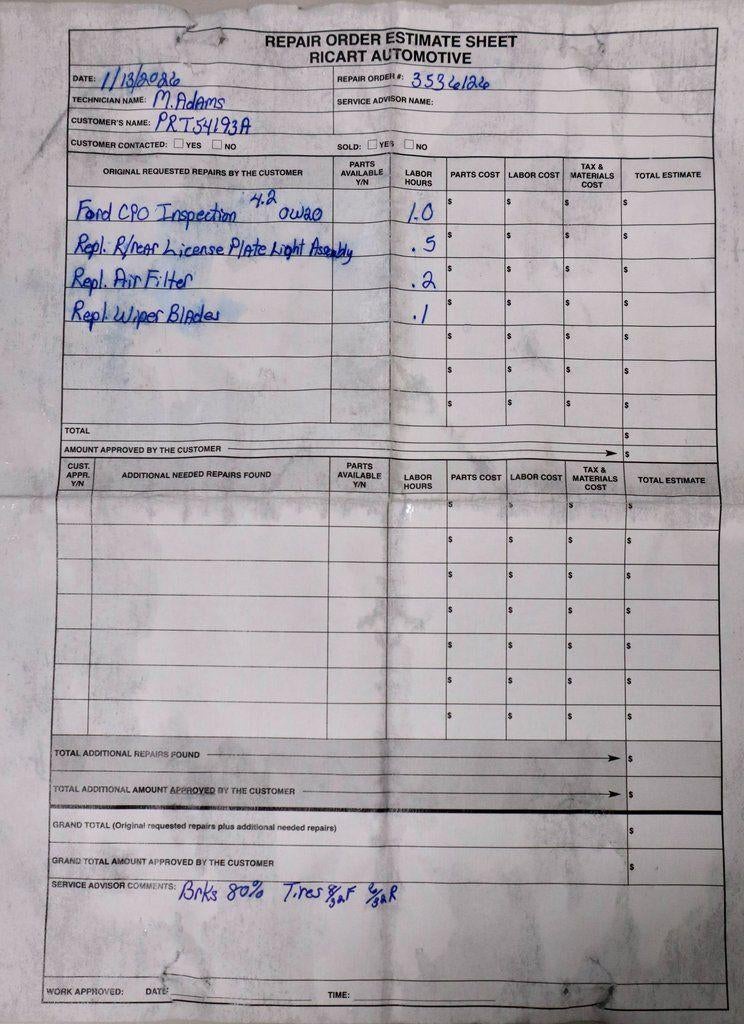 REPAIR ORDER ESTIMATE SHEET
RICART AUTOMOTIVE
DATE: 1/13/2026 REPAIR ORDER #: 3536126
TECHNICIAN NAME: M. Adams SERVICE ADVISOR NAME:
CUSTOMER'S NAME: PRT54193A
CUSTOMER CONTACTED: YES NO SOLD: YES NO
ORIGINAL REQUESTED REPAIRS BY THE CUSTOMER PARTS AVAILABLE Y/N LABOR HOURS PARTS COST LABOR COST TAX & MATERIALS COST TOTAL ESTIMATE
Ford CPO Inspection 4.2 0W20 1.0 $ $ $ $
Repl. R/rear License Plate Light Assembly .5 $ $ $ $
Repl. Air Filter .2 $ $ $ $
Repl. Wiper Blades .1 $ $ $ $
$ $ $ $
$ $ $ $
$ $ $ $
TOTAL $
AMOUNT APPROVED BY THE CUSTOMER $
CUST. APPR. Y/N ADDITIONAL NEEDED REPAIRS FOUND PARTS AVAILABLE Y/N LABOR HOURS PARTS COST LABOR COST TAX & MATERIALS COST TOTAL ESTIMATE
$ $ $ $
$ $ $ $
$ $ $ $
$ $ $ $
$ $ $ $
$ $ $ $
$ $ $ $
TOTAL ADDITIONAL REPAIRS FOUND $
TOTAL ADDITIONAL AMOUNT APPROVED BY THE CUSTOMER $
GRAND TOTAL (Original requested repairs plus additional needed repairs) $
GRAND TOTAL AMOUNT APPROVED BY THE CUSTOMER $
SERVICE ADVISOR COMMENTS: Brks 80% Tires 8/32F 6/32R
WORK APPROVED: DATE: TIME: